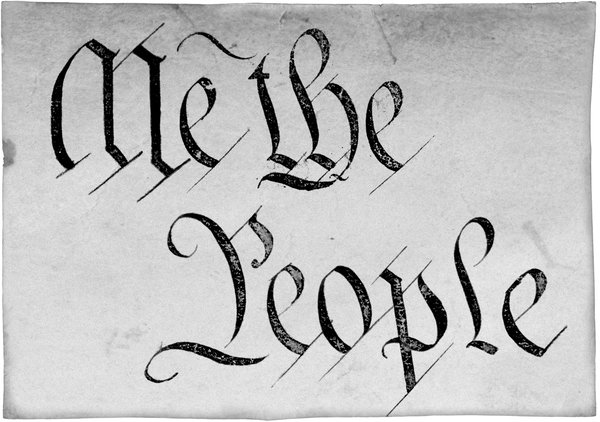 We the
People